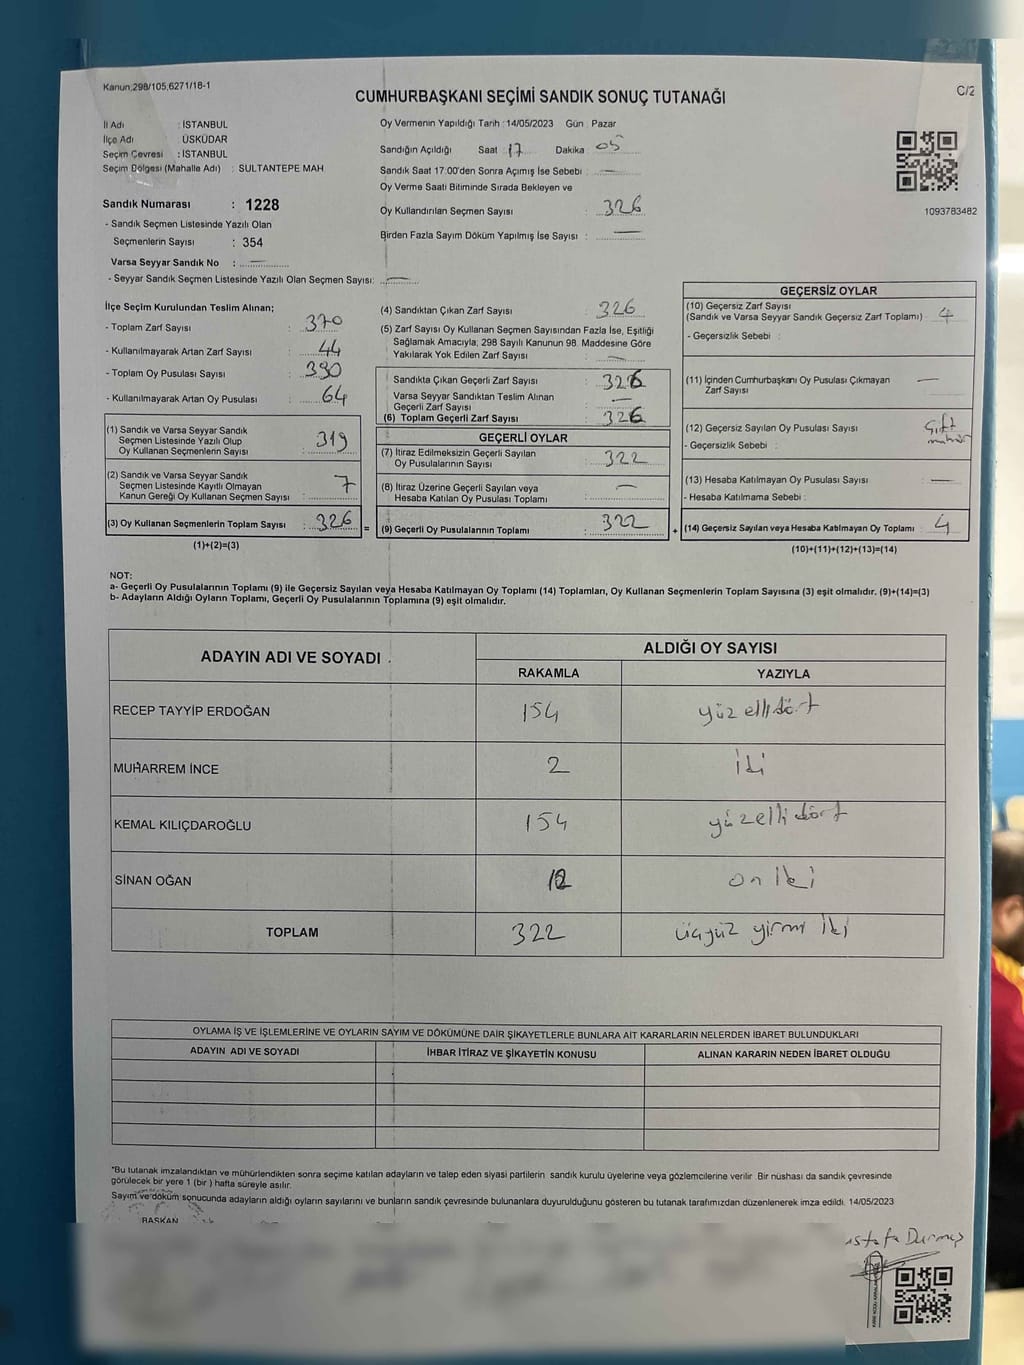 Kanun;298/105,6271/18-1
C/2
CUMHURBAŞKANI SEÇİMİ SANDIK SONUÇ TUTANAĞI
İl Adı : İSTANBUL
İlçe Adı : ÜSKÜDAR
Seçim Çevresi : İSTANBUL
Seçim Bölgesi (Mahalle Adı) : SULTANTEPE MAH
Sandık Numarası : 1228
- Sandık Seçmen Listesinde Yazılı Olan
Seçmenlerin Sayısı : 354
Varsa Seyyar Sandık No :
- Seyyar Sandık Seçmen Listesinde Yazılı Olan Seçmen Sayısı:
Oy Vermenin Yapıldığı Tarih :14/05/2023 Gün : Pazar
Sandığın Açıldığı Saat : 17 Dakika 05
Sandık Saat 17:00'den Sonra Açımış İse Sebebi :
Oy Verme Saati Bitiminde Sırada Bekleyen ve
Oy Kullandırılan Seçmen Sayısı : 326
Birden Fazla Sayım Döküm Yapılmış İse Sayısı :
1093783482
İlçe Seçim Kurulundan Teslim Alınan;
- Toplam Zarf Sayısı : 370
- Kullanılmayarak Artan Zarf Sayısı : 44
- Toplam Oy Pusulası Sayısı : 390
- Kullanılmayarak Artan Oy Pusulası : 64
(1) Sandık ve Varsa Seyyar Sandık
Seçmen Listesinde Yazılı Olup
Oy Kullanan Seçmenlerin Sayısı : 319
(2) Sandık ve Varsa Seyyar Sandık
Seçmen Listesinde Kayıtlı Olmayan
Kanun Gereği Oy Kullanan Seçmen Sayısı : 7
(3) Oy Kullanan Seçmenlerin Toplam Sayısı : 326
(1)+(2)=(3)
=
(4) Sandıktan Çıkan Zarf Sayısı : 326
(5) Zarf Sayısı Oy Kullanan Seçmen Sayısından Fazla İse, Eşitliği
Sağlamak Amacıyla; 298 Sayılı Kanunun 98. Maddesine Göre
Yakılarak Yok Edilen Zarf Sayısı :
Sandıkta Çıkan Geçerli Zarf Sayısı : 326
Varsa Seyyar Sandıktan Teslim Alınan
Geçerli Zarf Sayısı :
(6) Toplam Geçerli Zarf Sayısı : 326
GEÇERLİ OYLAR
(7) İtiraz Edilmeksizin Geçerli Sayılan
Oy Pusulalarının Sayısı : 322
(8) İtiraz Üzerine Geçerli Sayılan veya
Hesaba Katılan Oy Pusulası Toplamı :
(9) Geçerli Oy Pusulalarının Toplamı : 322
+
GEÇERSİZ OYLAR
(10) Geçersiz Zarf Sayısı
(Sandık ve Varsa Seyyar Sandık Geçersiz Zarf Toplamı) : 4
- Geçersizlik Sebebi :
(11) İçinden Cumhurbaşkanı Oy Pusulası Çıkmayan
Zarf Sayısı
(12) Geçersiz Sayılan Oy Pusulası Sayısı : Çift
- Geçersizlik Sebebi : mühür
(13) Hesaba Katılmayan Oy Pusulası Sayısı :
- Hesaba Katılmama Sebebi :
(14) Geçersiz Sayılan veya Hesaba Katılmayan Oy Toplamı : 4
(10)+(11)+(12)+(13)=(14)
NOT:
a- Geçerli Oy Pusulalarının Toplamı (9) ile Geçersiz Sayılan veya Hesaba Katılmayan Oy Toplamı (14) Toplamları, Oy Kullanan Seçmenlerin Toplam Sayısına (3) eşit olmalıdır. (9)+(14)=(3)
b- Adayların Aldığı Oyların Toplamı, Geçerli Oy Pusulalarının Toplamına (9) eşit olmalıdır.
ADAYIN ADI VE SOYADI ALDIĞI OY SAYISI
RAKAMLA YAZIYLA
RECEP TAYYİP ERDOĞAN 154 yüz ellidört
MUHARREM İNCE 2 iki
KEMAL KILIÇDAROĞLU 154 yüzellidört
SİNAN OĞAN 12 on iki
TOPLAM 322 üçyüz yirmi iki
OYLAMA İŞ VE İŞLEMLERİNE VE OYLARIN SAYIM VE DÖKÜMÜNE DAİR ŞİKAYETLERLE BUNLARA AİT KARARLARIN NELERDEN İBARET BULUNDUKLARI
ADAYIN ADI VE SOYADI İHBAR İTİRAZ VE ŞİKAYETİN KONUSU ALINAN KARARIN NEDEN İBARET OLDUĞU
*Bu tutanak imzalandıktan ve mühürlendikten sonra seçime katılan adayların ve talep eden siyasi partilerin sandık kurulu üyelerine veya gözlemcilerine verilir. Bir nüshası da sandık çevresinde
görülecek bir yere 1 (bir ) hafta süreyle asılır.
Sayım ve döküm sonucunda adayların aldığı oyların sayılarını ve bunların sandık çevresinde bulunanlara duyurulduğunu gösteren bu tutanak tarafımızdan düzenlenerek imza edildi. 14/05/2023
BAŞKAN
ustafa Durmuş